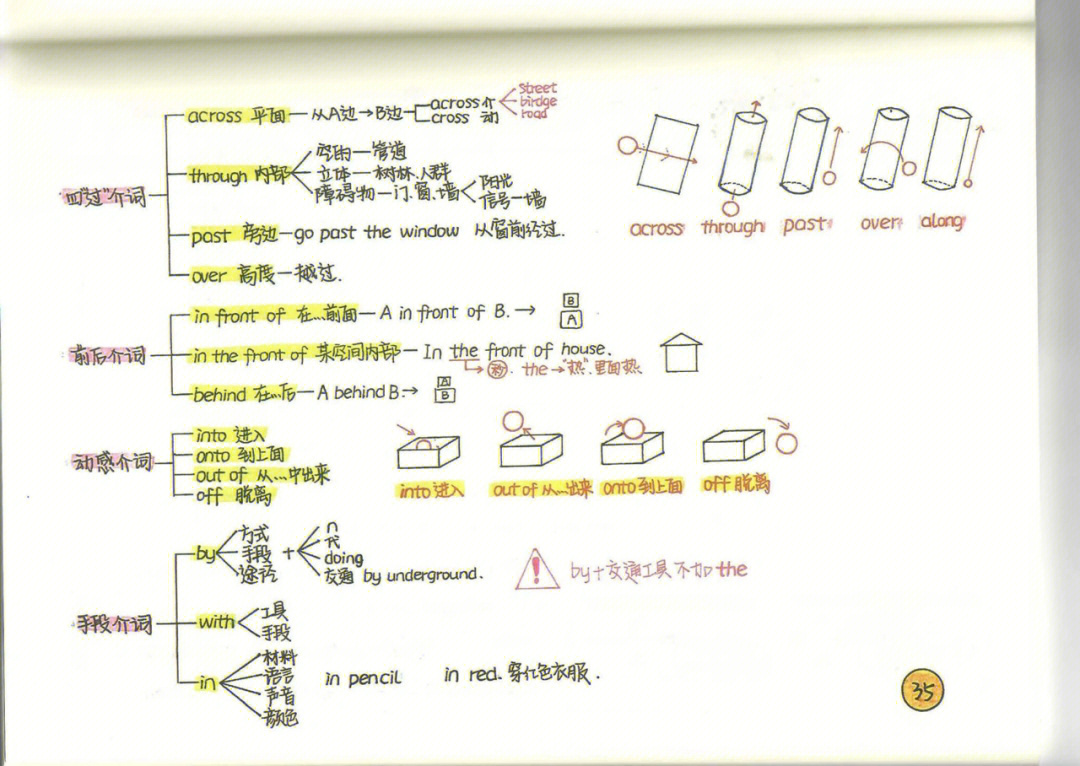 四"过"介词
across 平面 — 从A边→B边 across 介 street
cross 动 birdge
road
through 内部 空的 — 管道
立体 — 树林.人群
障碍物 — 门.窗.墙 阳光
信号 — 墙
past 旁边 — go past the window 从窗前经过.
over 高度 — 越过.
across through past over along
前后介词
in front of 在...前面 — A in front of B. → B
A
in the front of 某空间内部 — In the front of house.
→ 秒. the → "热". 里面热
behind 在...后 — A behind B. → A
B
动感介词
into 进入
onto 到上面
out of 从...中出来
off 脱离
into 进入 out of 从...出来 onto 到上面 off 脱离
手段介词
by 方式
手段 + n
途径 代
doing
交通 by underground.
! by+交通工具不加 the
with 工具
手段
in 材料
语言 in pencil in red. 穿红色衣服.
声音
颜色
35